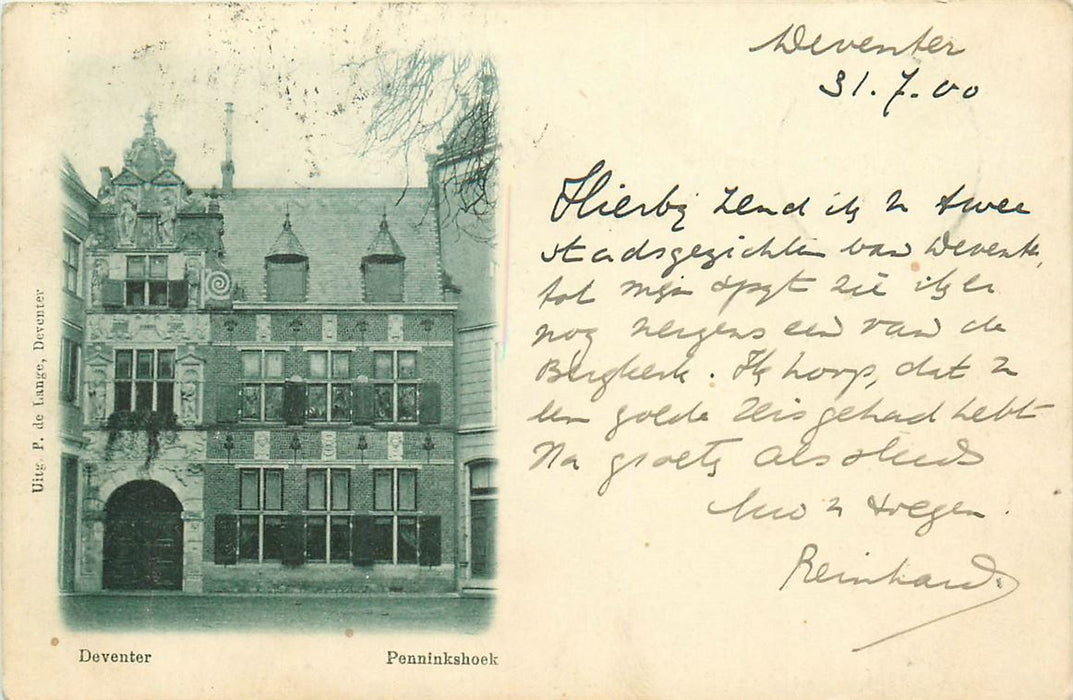 Deventer
31.7.00
Hierbij zend ik U twee
stadsgezichten van Deventer,
tot mijn spyt zie ik er
nog nergens een van de
Bergkerk. Ik hoop, dat U
een goede reis gehad hebt
Na groete, als steeds
Uw
Reinhard.
Uitg. P. de Lange, Deventer
Deventer
Penninkshoek